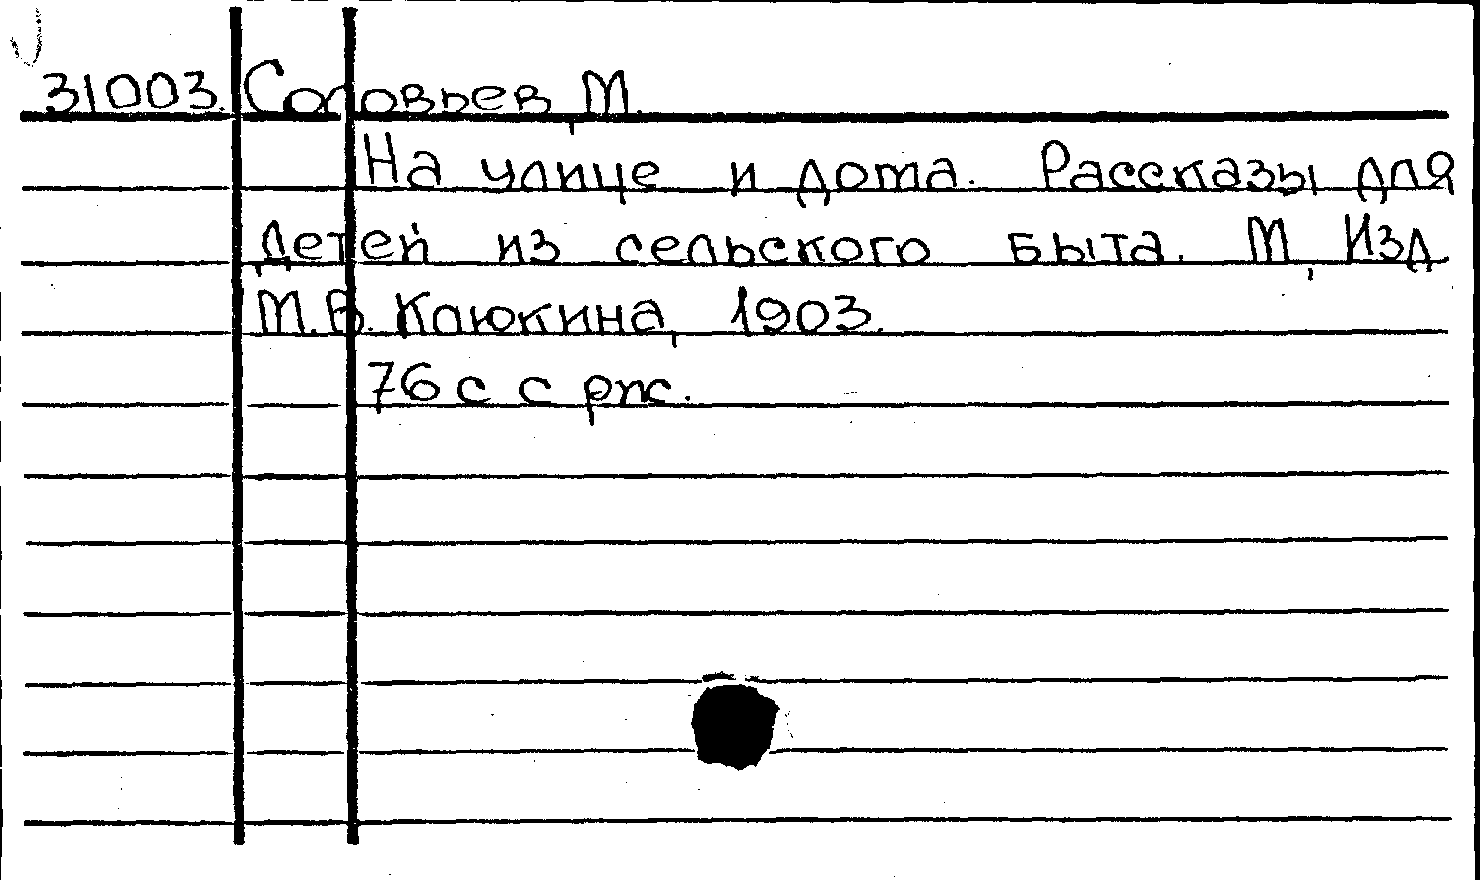 31003. Соловьев, М.
На улице и дома. Рассказы для
детей из сельского быта. М., Изд.
М.В. Клюкина, 1903.
76 с с рис.